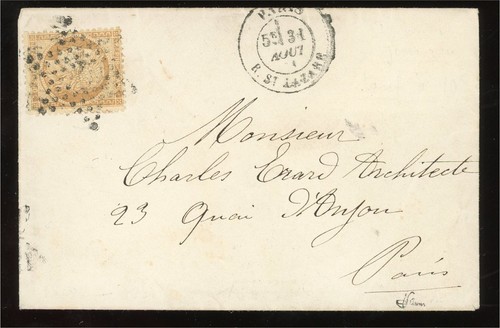 PARIS
5E 31
AOUT
R. ST LAZARE
Monsieur
Charles Erard Architecte
23 Quai d'Anjou
Paris